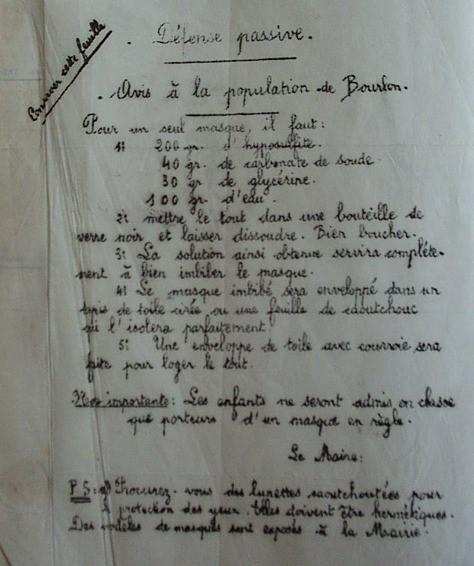 Conserver cette feuille
. Défense passive.
. Avis à la population de Bourlon.
Pour un seul masque, il faut:
1: 200 gr. d'hyposulfite.
40 gr. de carbonate de soude.
30 gr. de glycérine.
100 gr. d'eau.
2: mettre le tout dans une bouteille de
verre noir et laisser dissoudre. Bien boucher.
3: La solution ainsi obtenue servira complète-
ment à bien imbiber le masque.
4: Le masque imbibé sera enveloppé dans un
de toile cirée ou une feuille de caoutchouc
qui l'isolera parfaitement.
5: Une enveloppe de toile avec courroie sera
faite pour loger le tout.
importante: Les enfants ne seront admis en classe
que porteurs d'un masque en règle.
Le Maire:
P.S: Procurez-vous des lunettes caoutchoutées pour
la protection des yeux. Elles doivent être hermétiques.
Des modèles de masques sont exposés à la Mairie.